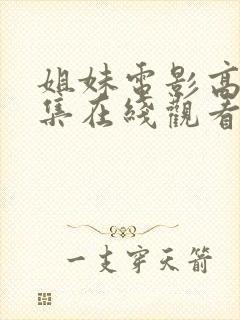 姐妹電影高
集在綫觀看
一支穿天箭